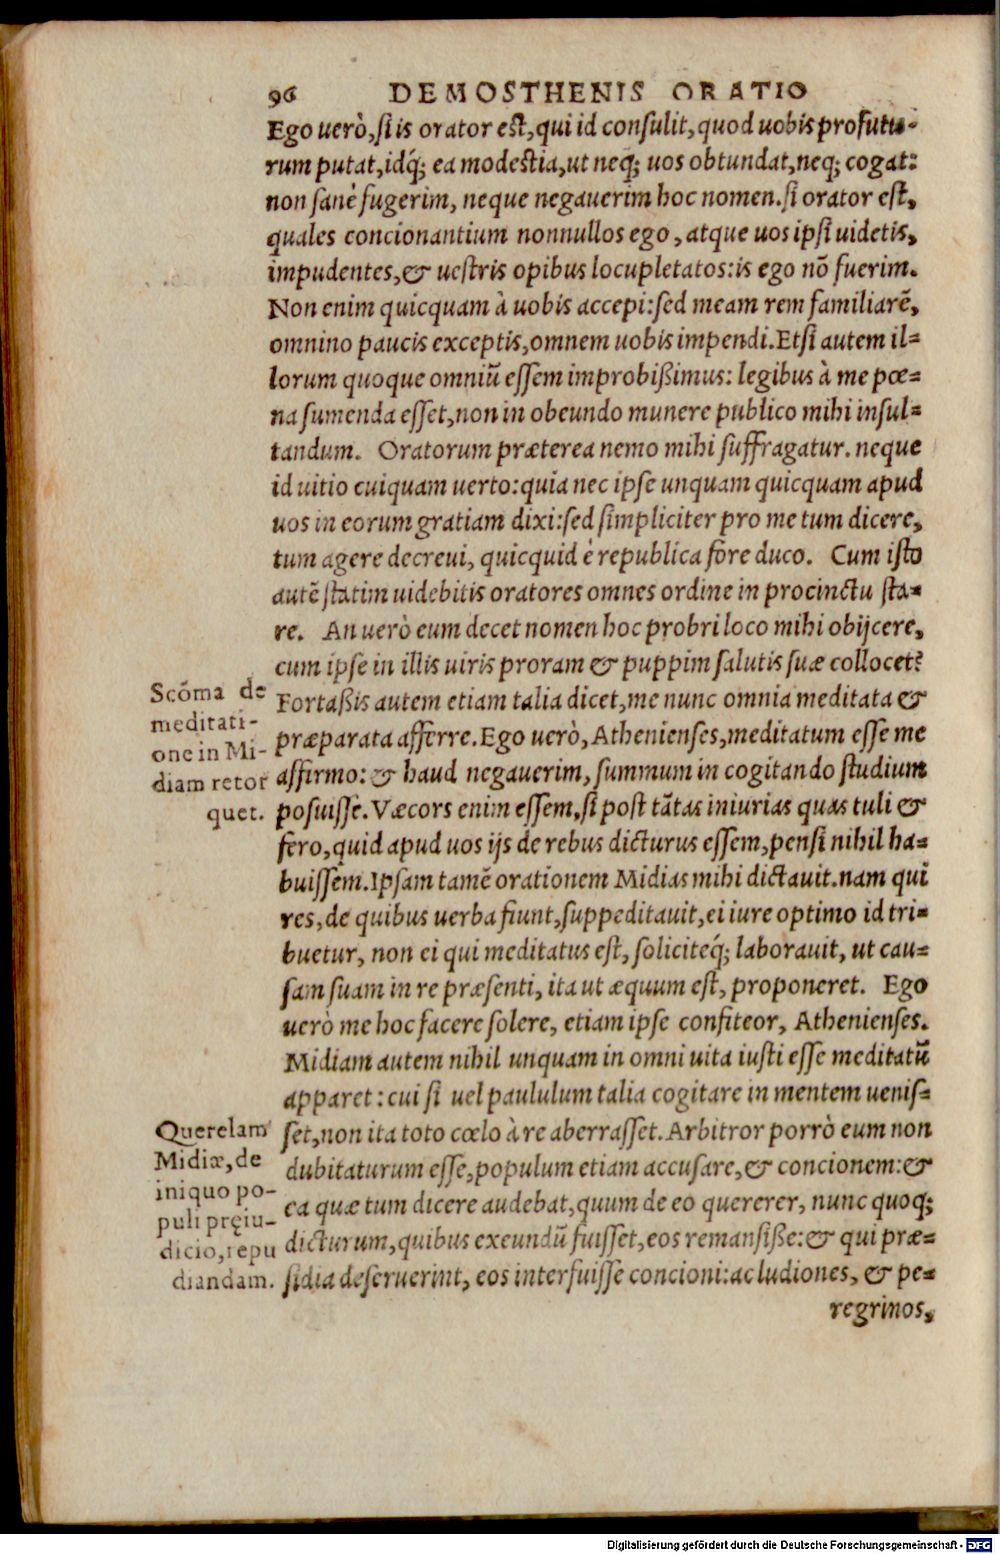 96 DEMOSTHENIS ORATIO
Ego uerò, ſi is orator eſt, qui id conſulit, quod uobis profutu-
rum putat, idq́; ea modeſtia, ut neq; uos obtundat, neq; cogat:
non ſanè fugerim, neque negauerim hoc nomen. ſi orator eſt,
quales concionantium nonnullos ego, atque uos ipſi uidetis,
impudentes, & ueſtris opibus locupletatos: is ego nõ fuerim.
Non enim quicquam à uobis accepi: ſed meam rem familiarẽ,
omnino paucis exceptis, omnem uobis impendi. Etſi autem il-
lorum quoque omniũ eſſem improbißimus: legibus à me pœ-
na ſumenda eſſet, non in obeundo munere publico mihi inſul-
tandum. Oratorum præterea nemo mihi ſuffragatur. neque
id uitio cuiquam uerto: quia nec ipſe unquam quicquam apud
uos in eorum gratiam dixi: ſed ſimpliciter pro me tum dicere,
tum agere decreui, quicquid è republica fore duco. Cum iſto
autẽ ſtatim uidebitis oratores omnes ordine in procinctu ſta-
re. An uerò eum decet nomen hoc probri loco mihi obijcere,
cum ipſe in illis uiris proram & puppim ſalutis ſuæ collocet?
Fortaßis autem etiam talia dicet, me nunc omnia meditata &
præparata afferre. Ego uerò, Athenienſes, meditatum eſſe me
affirmo: & haud negauerim, ſummum in cogitando ſtudium
poſuiſſe. Væcors enim eſſem, ſi poſt tãtas iniurias quas tuli &
fero, quid apud uos ijs de rebus dicturus eſſem, penſi nihil ha-
buiſſem. Ipſam tamẽ orationem Midias mihi dictauit. nam qui
res, de quibus uerba fiunt, ſuppeditauit, ei iure optimo id tri-
buetur, non ei qui meditatus eſt, ſoliciteq́; laborauit, ut cau-
ſam ſuam in re præſenti, ita ut æquum eſt, proponeret. Ego
uerò me hoc facere ſolere, etiam ipſe confiteor, Athenienſes.
Midiam autem nihil unquam in omni uita iuſti eſſe meditatũ
apparet: cui ſi uel paululum talia cogitare in mentem ueniſ-
ſet, non ita toto cœlo à re aberraſſet. Arbitror porrò eum non
dubitaturum eſſe, populum etiam accuſare, & concionem: &
ea quæ tum dicere audebat, quum de eo quererer, nunc quoq;
dicturum, quibus exeundũ fuiſſet, eos remanſiße: & qui præ-
ſidia deſeruerint, eos interfuiſſe concioni: ac ludiones, & pe-
regrinos,
Scõma de
meditati-
one in Mi-
diam retor
quet.
Querelam
Midiæ, de
iniquo po-
puli pręiu-
dicio, repu
diandam.
Digitalisierung gefördert durch die Deutsche Forschungsgemeinschaft - DFG